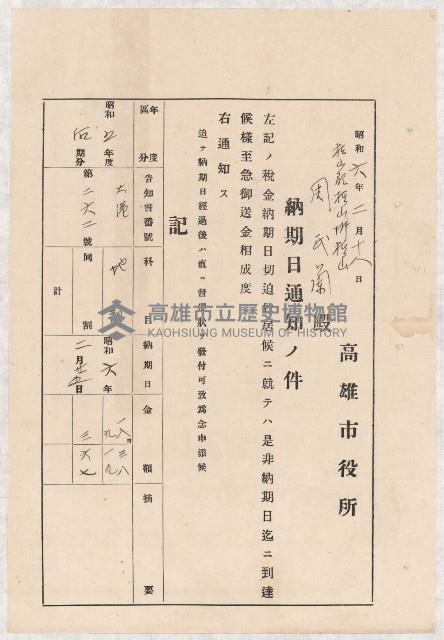 昭和六年二月十八日
高雄市役所
周氏蘭殿
納期日通知ノ件
左記ノ稅金納期日切迫致居候ニ就テハ是非納期日迄ニ到達
候樣至急御送金相成度
右通知ス
追テ納期日經過後ハ直ニ督促狀ヲ發付可致爲念申添候
記
年度
區分
告知書番號
科目
納期日
金額
摘要
昭和五年度
期分
大港
第二六二號
地
同割
計
昭和六年
二月廿五日
高雄市立歷史博物館
KAOHSIUNG MUSEUM OF HISTORY